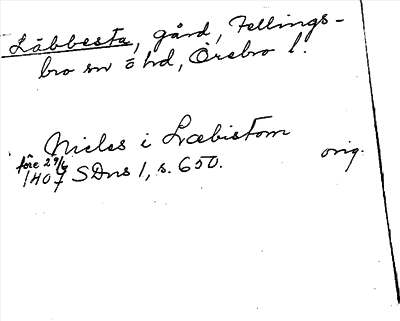 Läbbesta, gård, Fellings-
bro sn ö hd, Örebro l.
Nicles i Læbistom
orig.
före 29/6
1407 SDns 1, s. 650.